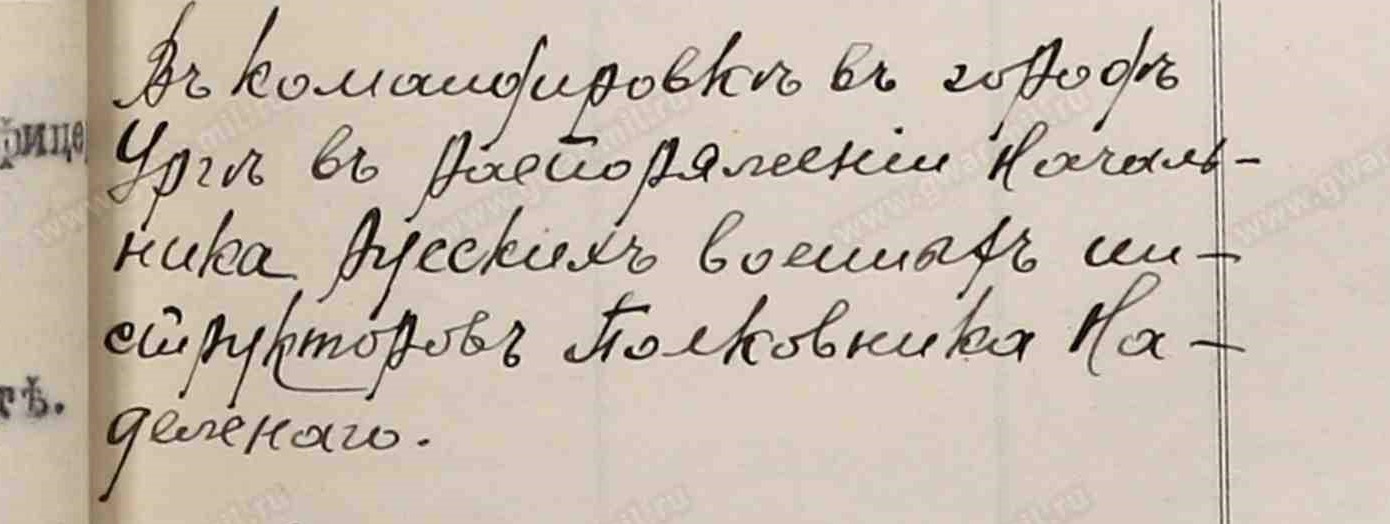 фице
Въ командировкѣ въ городѣ
Ургѣ въ распоряженіи Началь-
ника русскихъ военныхъ ин-
структоровъ Полковника На-
деленаго.
тѣ.
www.gwar.mil.ru